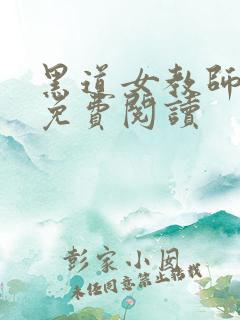 黑道女教師
免費閱讀
彭家小囡
未经同意禁止转载